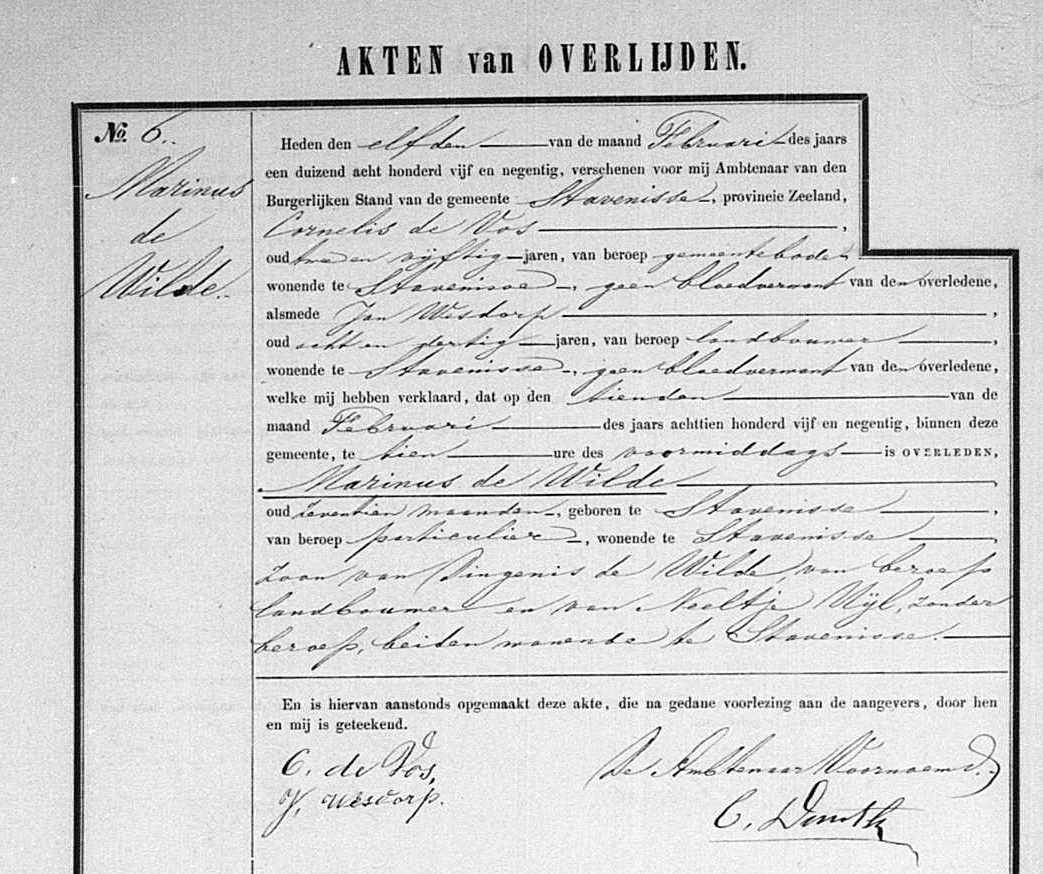 AKTEN van OVERLIJDEN.
No. 6.
Marinus
de
Wilde.
Heden den elfden van de maand Februari des jaars
een duizend acht honderd vijf en negentig, verschenen voor mij Ambtenaar van den
Burgerlijken Stand van de gemeente Stavenisse, provincie Zeeland,
Cornelis de Vos,
oud twee en vijftig jaren, van beroep gemeentebode,
wonende te Stavenisse, geen bloedverwant van den overledene,
alsmede Jan Wesdorp,
oud acht en dertig jaren, van beroep landbouwer,
wonende te Stavenisse, geen bloedverwant van den overledene,
welke mij hebben verklaard, dat op den tienden van de
maand Februari des jaars achttien honderd vijf en negentig, binnen deze
gemeente, te tien ure des voormiddags is OVERLEDEN,
Marinus de Wilde,
oud zeventien maanden, geboren te Stavenisse,
van beroep particulier, wonende te Stavenisse,
zoon van Dingenis de Wilde, van beroep
landbouwer en van Neeltje Uijl, zonder
beroep, beiden wonende te Stavenisse.
En is hiervan aanstonds opgemaakt deze akte, die na gedane voorlezing aan de aangevers, door hen
en mij is geteekend.
C. de Vos,
J. Wesdorp.
De Ambtenaar Voornoemd.
C.